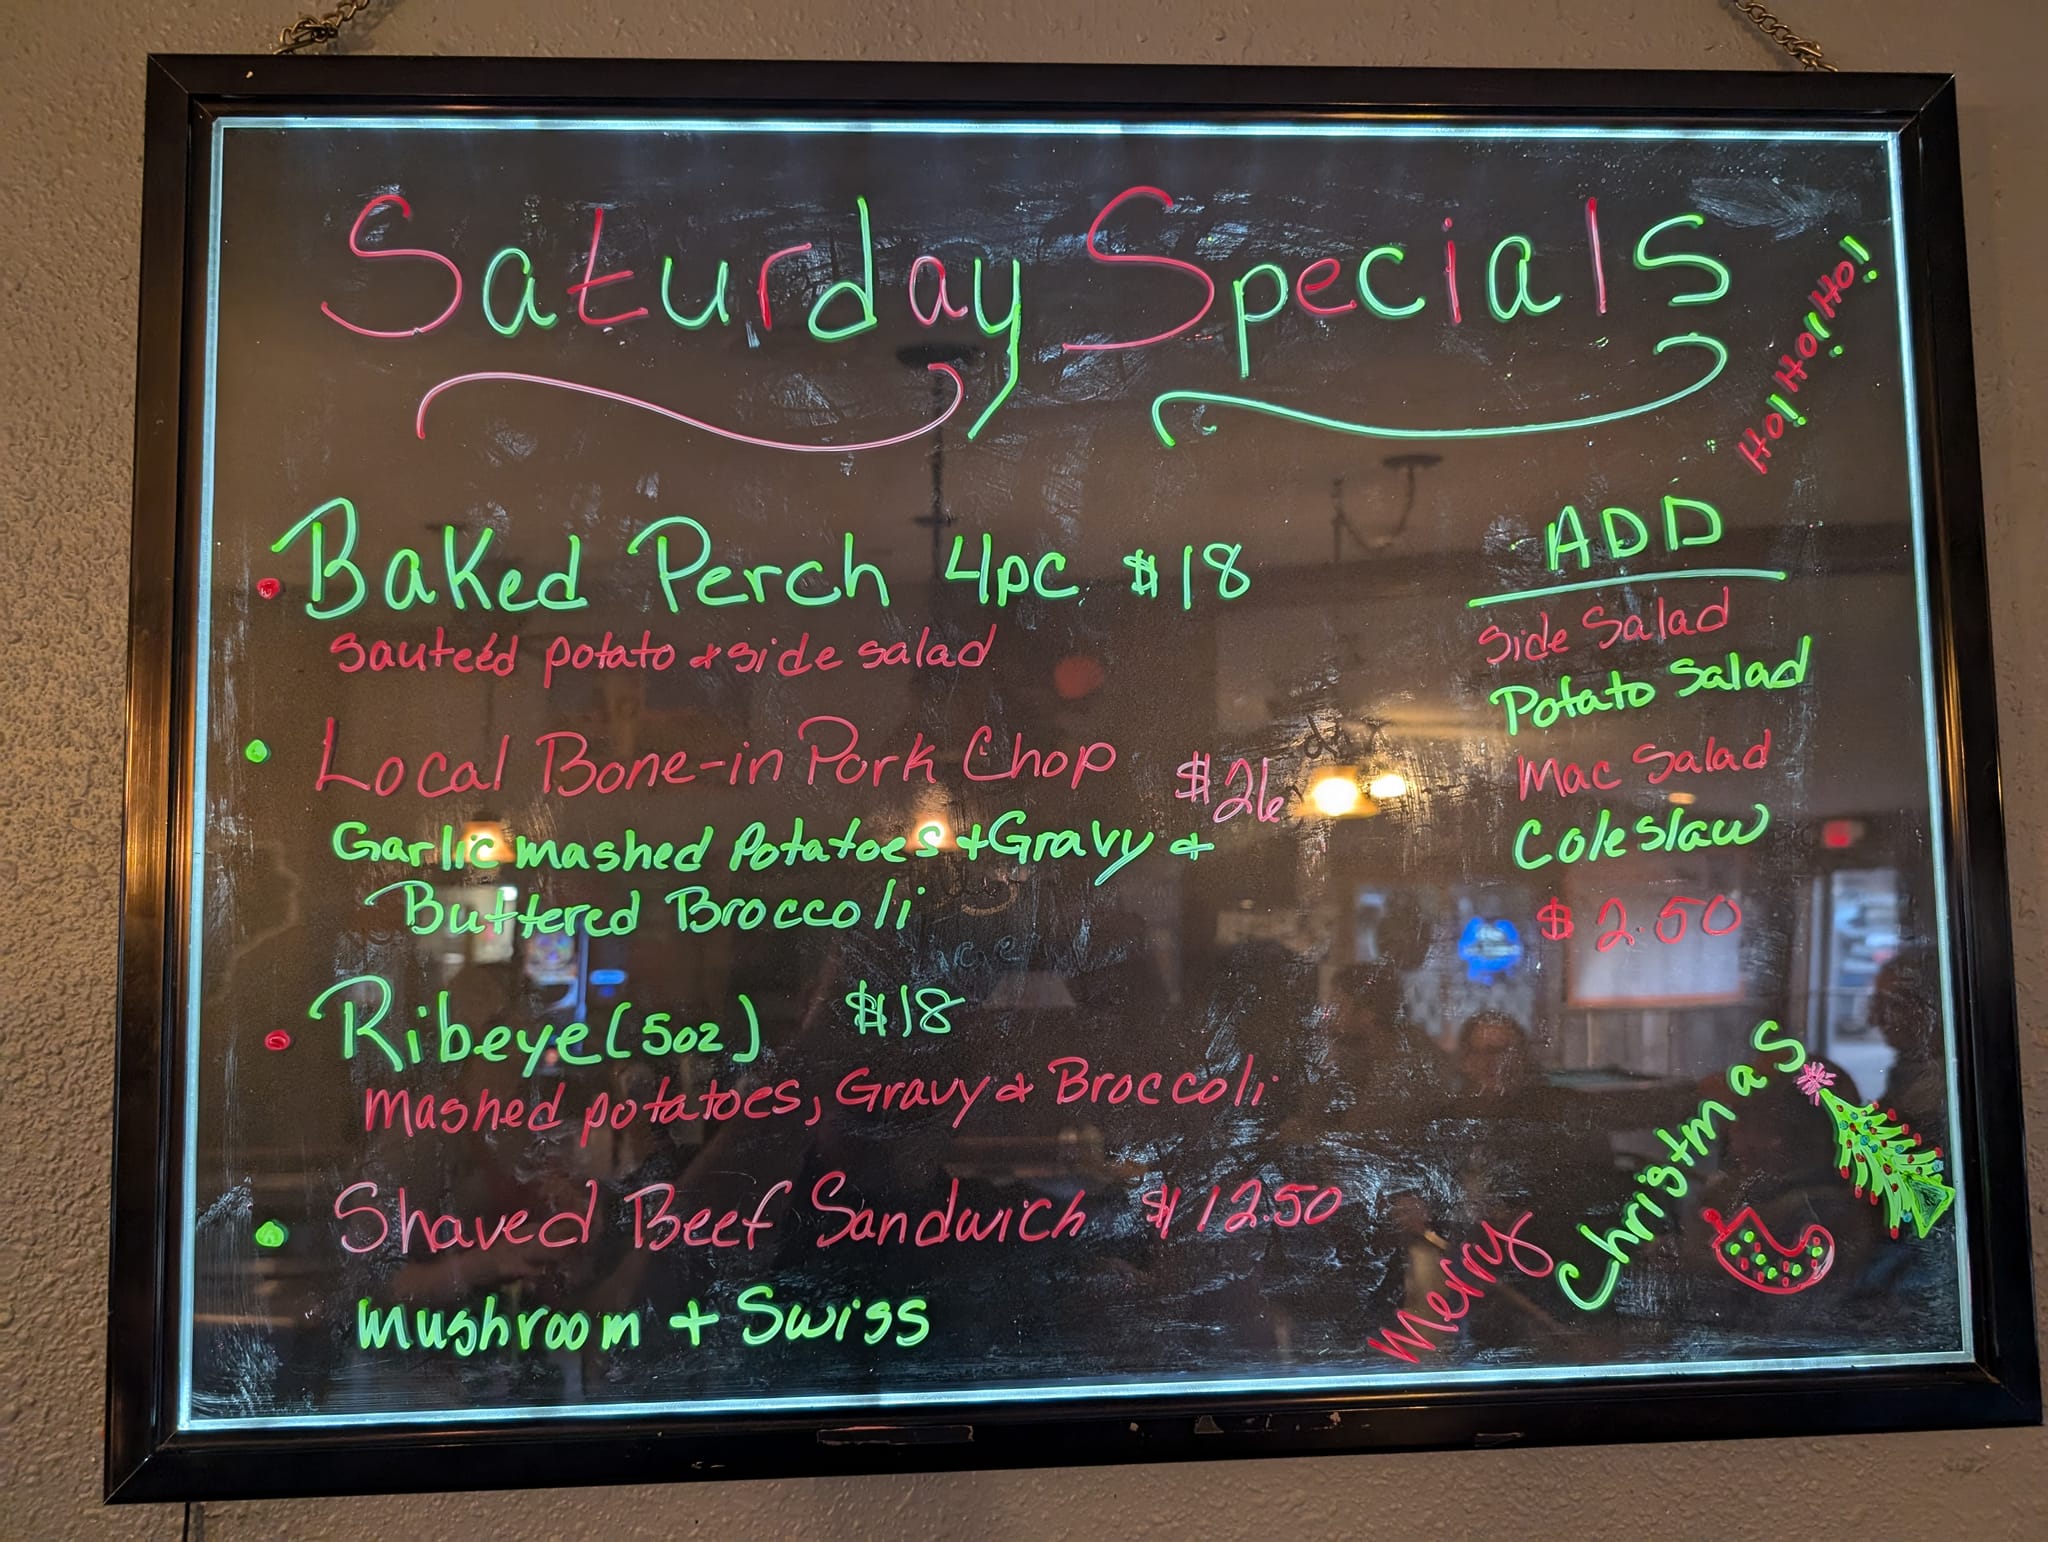 Saturday Specials
Ho! Ho! Ho!
• Baked Perch 4pc $18
sauteéd potato & side salad
• Local Bone-in Pork Chop $26
Garlic mashed Potatoes + Gravy &
Buttered Broccoli
• Ribeye (5oz) $18
Mashed potatoes, Gravy & Broccoli
• Shaved Beef Sandwich $12.50
Mushroom + Swiss
ADD
Side Salad
Potato Salad
Mac Salad
Coleslaw
$2.50
Merry Christmas